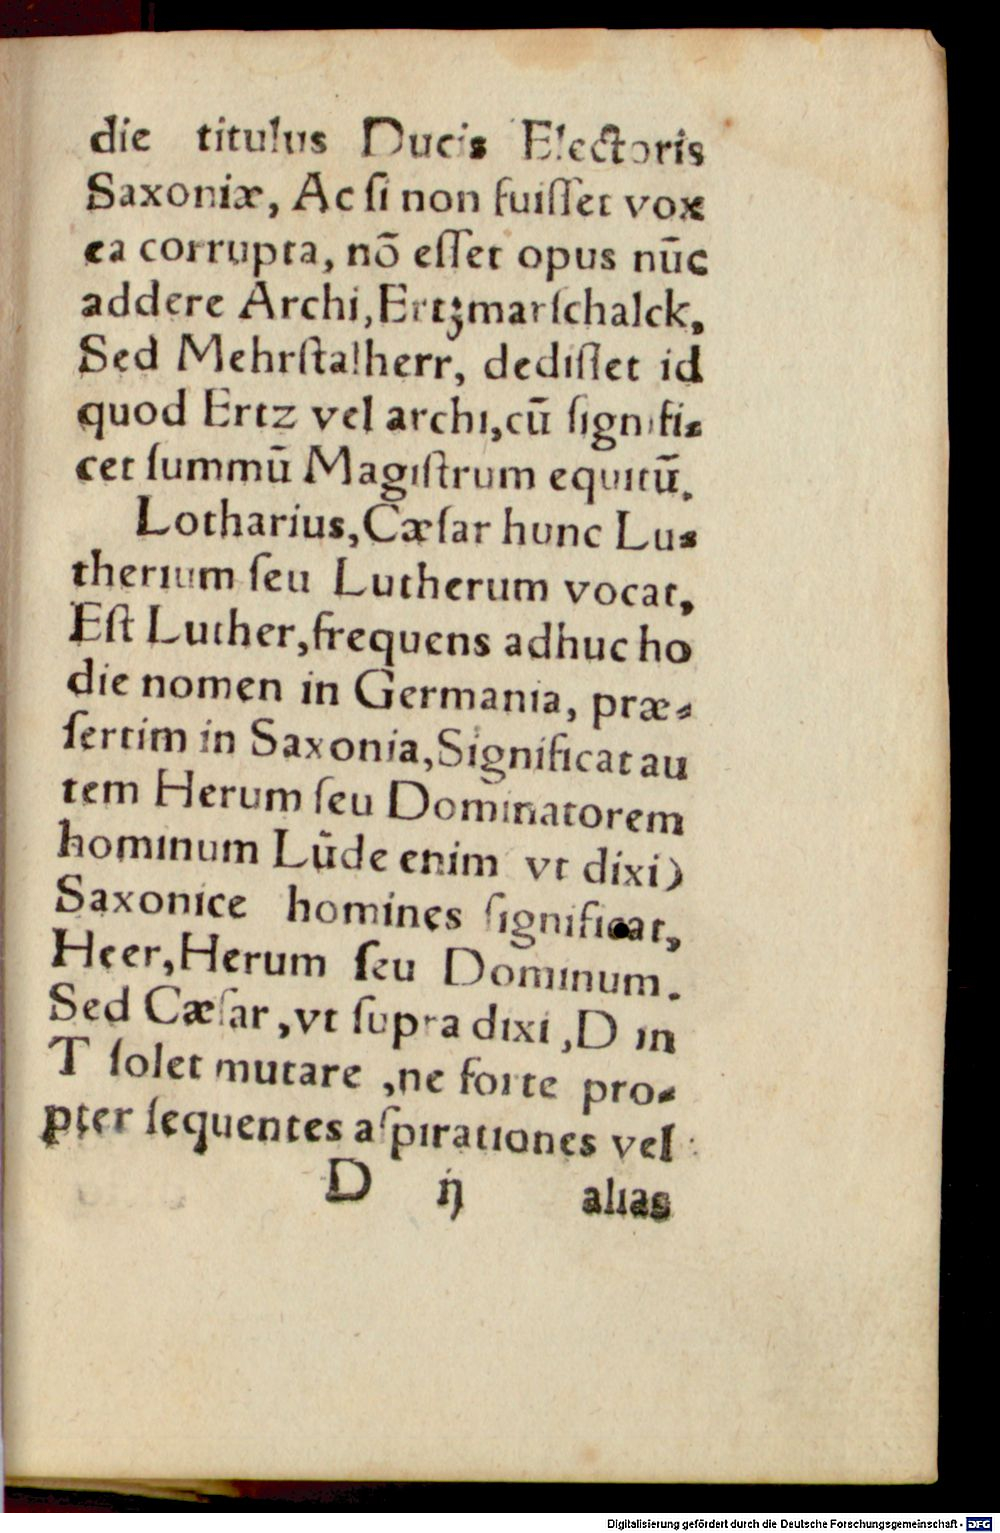 die titulus Ducis Electoris
Saxoniæ, Ac ſi non fuiſſet vox
ea corrupta, nō eſſet opus nūc
addere Archi, Ertzmarſchalck,
Sed Mehrſtalherr, dediſſet id
quod Ertz vel archi, cū ſignifi⸗
cet ſummū Magiſtrum equitū.
Lotharius, Cæſar hunc Lu⸗
therium ſeu Lutherum vocat,
Eſt Luther, frequens adhuc ho
die nomen in Germania, præ⸗
ſertim in Saxonia, Significat au
tem Herum ſeu Dominatorem
hominum Lūde enim vt dixi)
Saxonice homines ſignificat,
Heer, Herum ſeu Dominum.
Sed Cæſar, vt ſupra dixi, D in
T ſolet mutare, ne forte pro⸗
pter ſequentes aſpirationes vel
D ij alias
Digitalisierung gefördert durch die Deutsche Forschungsgemeinschaft - DFG